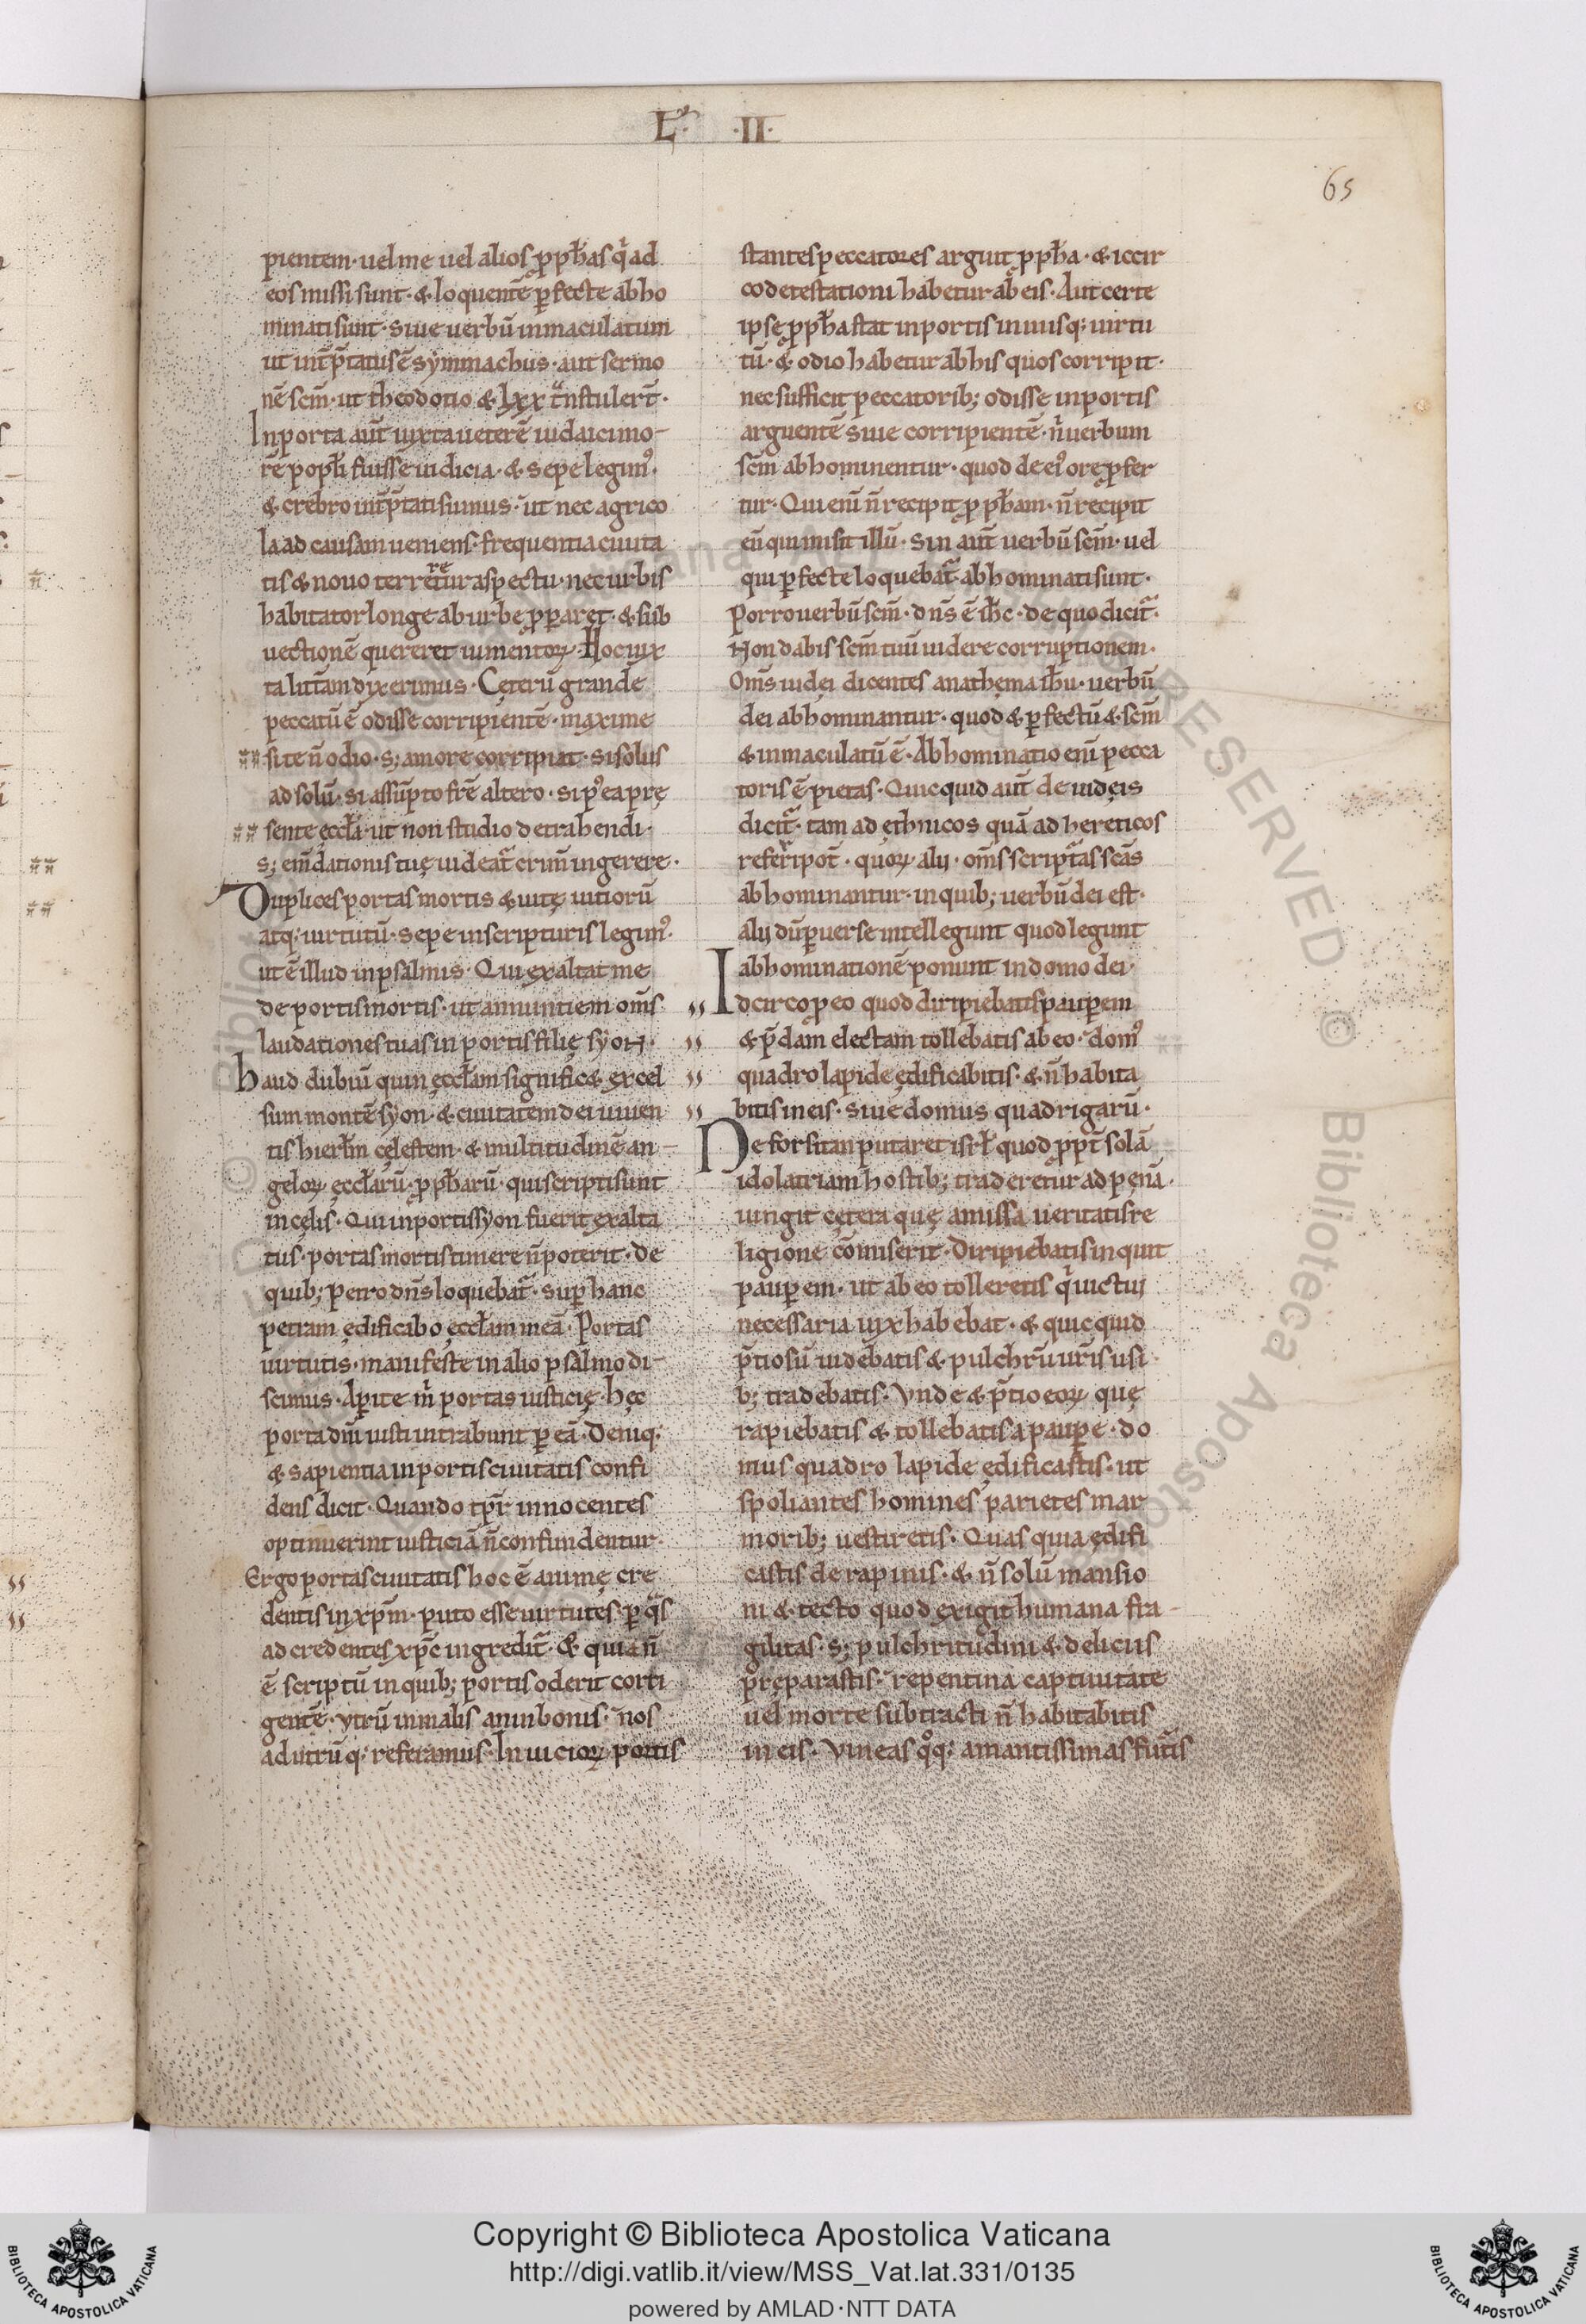 L. ·II·
65
pientem· uel me uel alios ꝓph̄as q̇ ad
eos missi sunt· & loquentē ꝑfecte abho
minati sunt· Siue uerbū inmaculatum
ut int̄p̄tatus ē symmachus· aut sermo
nē sc̄m· ut theodotio & lxx t̄nstuler̄t·
In porta aut̄ iuxta ueterē iudaici mo-
rē pop̄li fuisse iudicia· & sepe legim᾽·
& crebro int̄p̄tati sumus· ut nec agrico
la ad causam ueniens· frequentia ciuita
tis & nouo terreretur aspectu· nec urbis
habitator longe ab urbe ꝓparęt· & sub
uectionē quereret iumentoꝝ· Hoc iux
ta litt̄am dixerimus· Cęterū grande
peccatū ē odisse corripientē· maxime
si te n̄ odio· s; amore corripiat· si solus
ad solū· si assūpto fr̄e altero· si p᾽ea prę
sente ęccl̄a· ut non studio detrahendi·
s; em̄dationis tuę uideat᷑ crim̄ ingerere·
Duplices portas mortis & uitę uitiorū
atq; uirtutū· sepe in scripturis legim᾽·
ut ē illud in psalmis· Qui exaltat me
de portis mortis· ut annuntiem om̄s
laudationes tuas in portis filię syon·
haud dubiū quin ęccl̄am signific& excel
sum montē syon· & ciuitatem dei uiuen
tis hierl̄m cęlestem· & multitudinē an-
geloꝝ ęccl̄arū· ꝓph̄arū· qui scripti sunt
in cęlis· Qui in portis syon fuerit exalta
tus· portas mortis timere n̄ poterit· de
quib; petro dn̄s loquebat᷑· sup hanc
petram ędificabo ęccl̄am meā· Portas
uirtutis· manifeste in alio psalmo di-
scimus· Aperite m̄ portas iusticię· hęc
porta dn̄i iusti intrabunt ꝑ eā· Deniq;
& sapientia in portis ciuitatis confi
dens dicit· Quando tp̄r innocentes
optinuerint iusticiā n̄ confundentur·
Ergo portas ciuitatis hoc ē animę cre
dentis in xp̄m· puto esse uirtutes· ꝑ q̄s
ad credentes xp̄c ingredit᷑· & quia n̄
ē scriptū in quib; portis oderit corri
gentē· vtrū in malis an in bonis· nos
ad utrūq; referamus· In uicioꝝ portis
stantes peccatores arguit ꝓph̄a· & iccir
co detestationi habetur ab eis· Aut certe
ipse ꝓph̄a stat in portis inuiisq; uirtu
tū· & odio habetur ab his quos corripit·
nec sufficit peccatorib; odisse in portis
arguentē siue corripientē· n̄ uerbum
sc̄m abhominentur· quod de ei᾽ ore ꝓfer
tur· Qui eni n̄ recipit ꝓph̄am· n̄ recipit
eū qui misit illū· Sin aut̄ uerbū sc̄m· uel
qui ꝑfecte loquebat᷑· abhominati sunt·
Porro uerbū sc̄m· dn̄s ē ih̄c· de quo dicit᷑·
Non dabis sc̄m tuū uidere corruptionem·
Om̄s iudęi dicentes anathema ih̄u· uerbū
dei abhominantur· quod & ꝑfectū & sc̄m
& inmaculatū ē· Abhominatio eni pecca
toris ē pietas· Quicquid aut̄ de iudęis
dicit᷑· tam ad ęthnicos quā ad hereticos
referri pot̄· quoꝝ alij· om̄s script᷑as sc̄as
abhominantur· in quib; uerbū dei est·
alij dū ꝑuerse intellegunt quod legunt
abhominationē ponunt in domo dei·
Idcirco ꝓ eo quod diripiebatis pauꝑem
& p̄dam electam tollebatis ab eo· dom᾽
quadro lapide ędificabitis· & n̄ habita
bitis in eis· siue domus quadrigarū·
Ne forsitan putaret isrl̄ quod ꝓpt̄ solā
idolatriam hostib; traderetur ad pęnā·
iungit cętera quę amissa ueritatis re
ligione cōmiserit· Diripiebatis inquit
pauꝑem· ut ab eo tolleretis q̇ uictui
necessaria uix habebat· & quicquid
p̄tiosū uidebatis & pulchrū ur̄is usi
b; tradebatis· Vnde & p̄tio eoꝝ quę
rapiebatis & tollebatis a pauꝑe· do
mus quadro lapide ędificastis· ut
spoliantes homines parietes mar
morib; uestiretis· Quas quia ędifi
castis de rapinis· & n̄ solū mansio
ni & tecto quod exigit humana fra-
gilitas· s; pulchritudini & deliciis
pręparastis· repentina captiuitate
uel morte subtracti n̄ habitabitis
in eis· Vineas qͦq; amantissimas fut᷑is
Copyright © Biblioteca Apostolica Vaticana
http://digi.vatlib.it/view/MSS_Vat.lat.331/0135
powered by AMLAD·NTT DATA
BIBLIOTECA APOSTOLICA VATICANA
BIBLIOTECA APOSTOLICA VATICANA